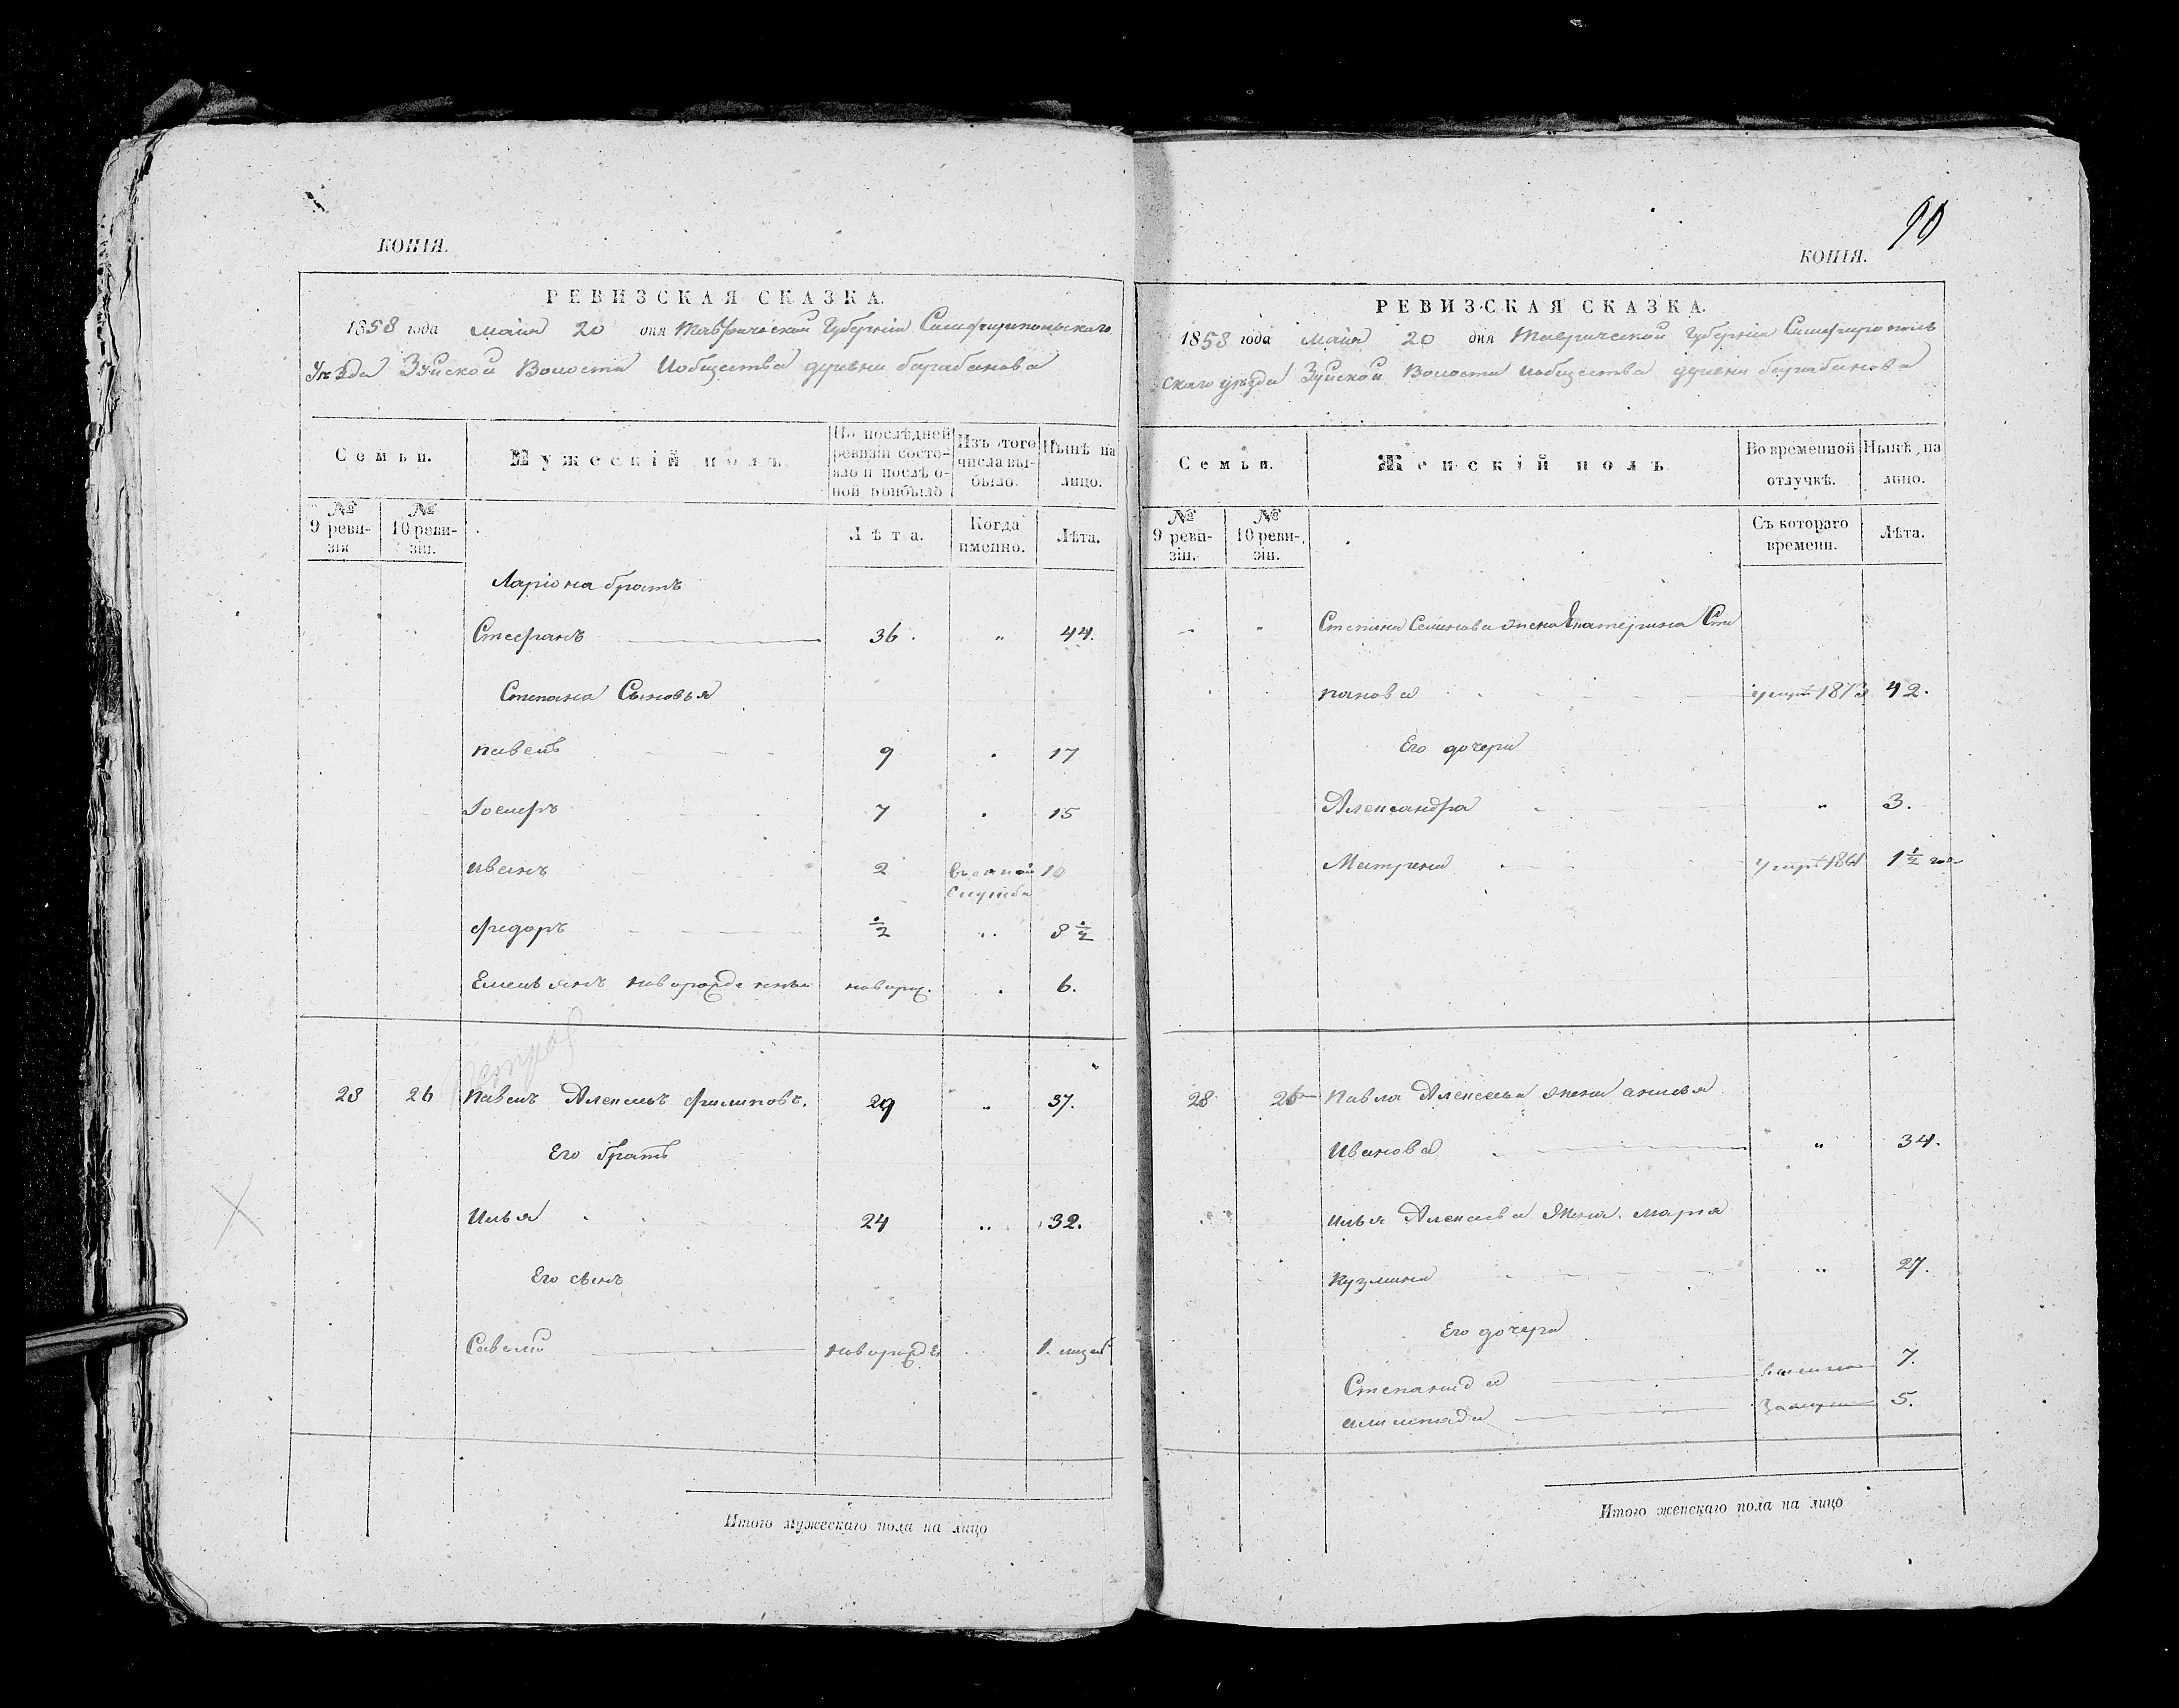 КОПІЯ.
РЕВИЗСКАЯ СКАЗКА.
1858 года маія 20 дня Таврической Губерніи Симферопольскаго
Уезда Зуйской Волости Иобщества деревни барабанова
Семьи.
Мужескій полъ
По послѣдней ревизіи состояло и послѣ оной прибыло
Изъ того числа выбыло.
Нынѣ на лицо.
№ 9 ревизіи
№ 10 ревизіи.
Лѣта.
Когда именно.
Лѣта.
Ларіона братъ
Стефанъ 36. " 44.
Степана Сыновья
павелъ 9 17
Іосифъ 7 15
иванъ 2 10
службе
федоръ ½ " 8 ½
Емельянъ новорожд. 6.
28 26 павелъ Алексеевъ филиповъ. 29 " 37.
Его братъ
Илья 24 " 32.
Его сынъ
Савелій новорожден 1.
Итого мужескаго пола на лицо
90
КОПІЯ.
РЕВИЗСКАЯ СКАЗКА.
1858 года маія 20 дня Таврической Губерніи Симферополь
скаго уезда Зуйской Волости иобщества деревни барабанова
Семьи.
Женскій полъ
Во временной отлучкѣ.
Нынѣ на лицо.
№ 9 ревизіи.
№ 10 ревизіи.
Съ котораго времени.
Лѣта.
" " Степана Семенова жена Екатерина Сте
панова 1873 42.
Его дочери
Александра " 3.
Матрена 1½ года
28 26 павла Алексеева жена анисья
Иванова " 34.
Ильи Алексеева жена мария
кузмина " 27.
Его дочери
Степанида 7.
5.
Итого женскаго пола на лицо